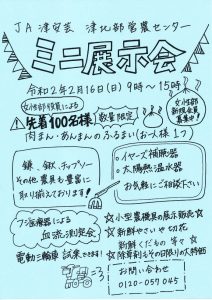 JA津安芸 津北部営農センター
ミニ展示会
令和2年2月16日(日) 9時〜15時
女性部役員による
先着100名様 数量限定
肉まん・あんまんのふるまい(お一人様1つ)
女性部
新規会員
募集中!
鎌、鍬、チップソー
その他農具も豊富に
取り揃えております!
イヤーズ補聴器
太陽熱温水器
お気軽にご相談下さい
フジ医療器による
血流測定会
電動三輪車 試乗できます!
☆小型農機具の展示販売☆
☆新鮮やさいや切花
新鮮くだもの等々☆
☆除草剤もその日限りの大特価
お問い合わせ
0120-057045